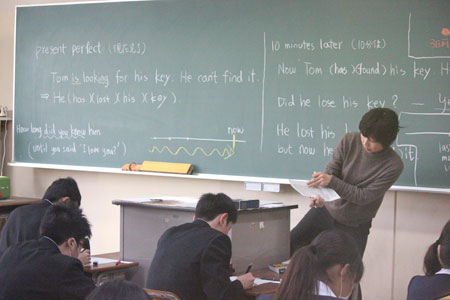 present perfect (現在完了)
Tom is looking for his key. He can't find it.
⇒ He (has)(lost)(his)(key).
How long did you know him
(until you said "I love you?")
now
10 minutes later (10分後)
Now Tom (has)(found) his key. H
Did he lose his key?
He lost his
but now he